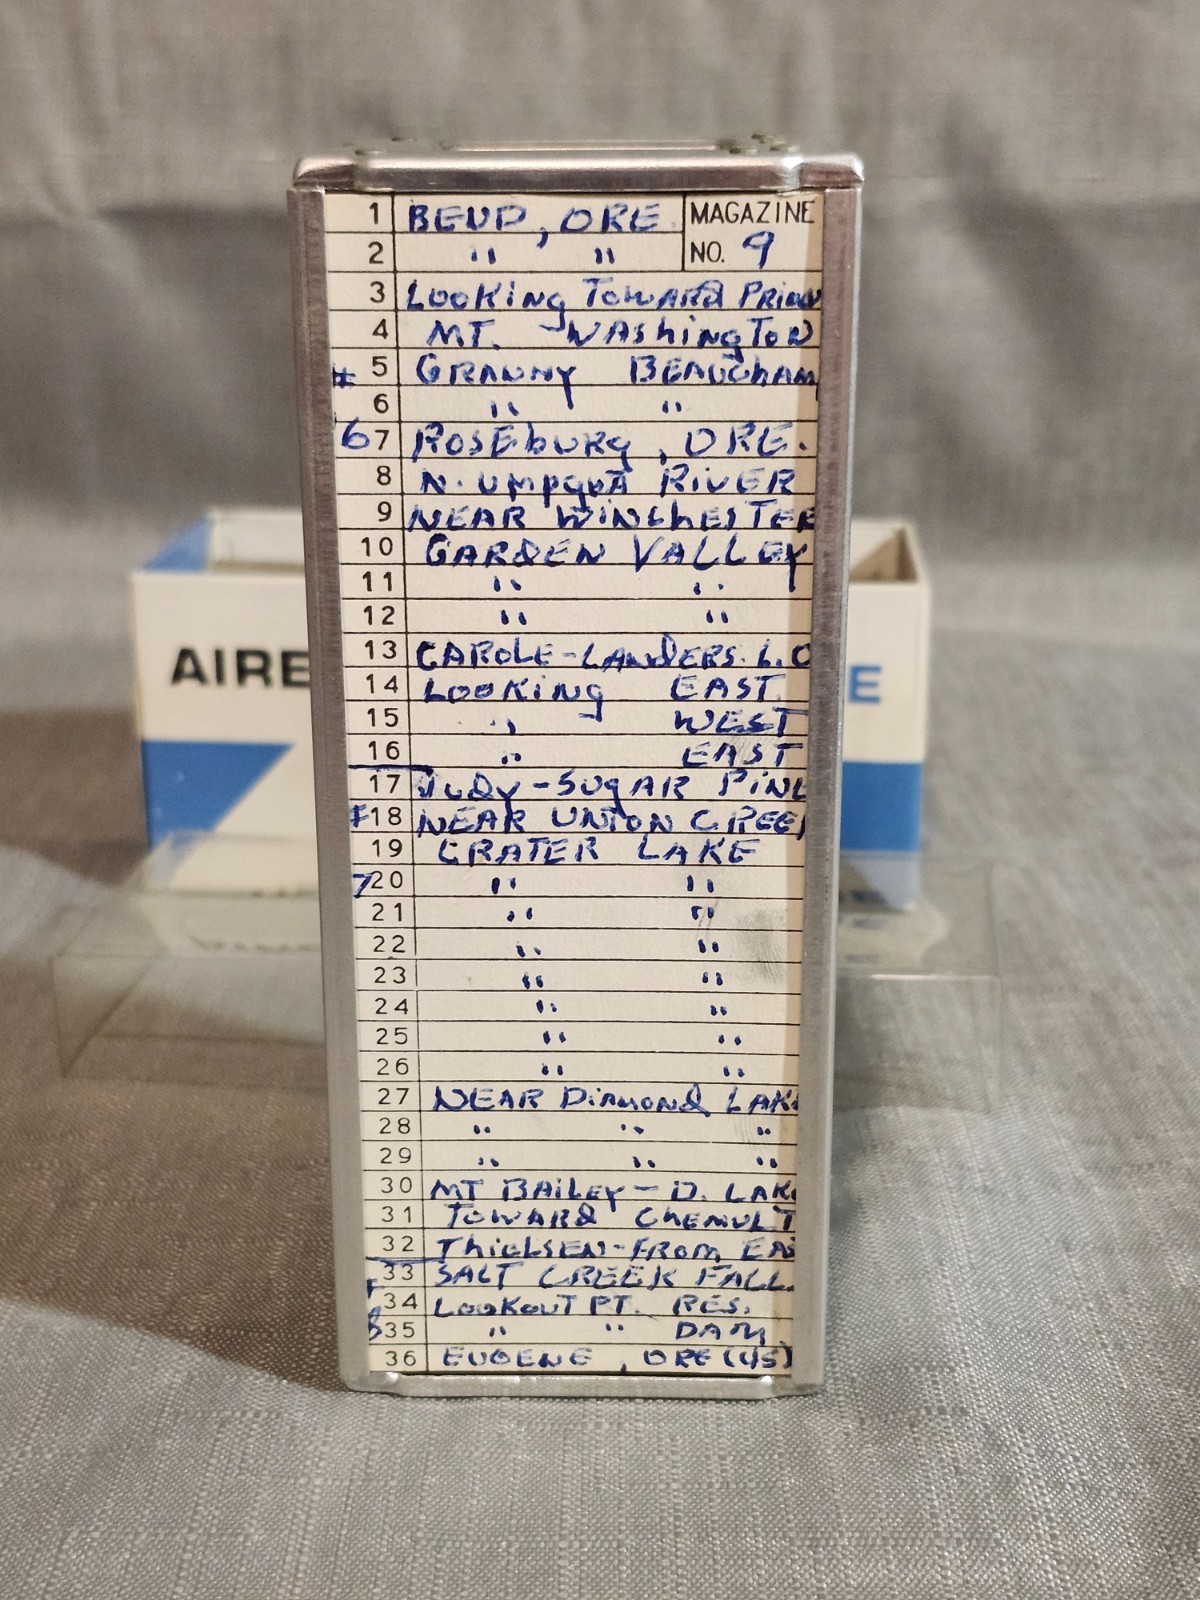 1 BEND, ORE MAGAZINE
2 " " NO. 9
3 LOOKING TOWARD
4 MT. WASHINGTON
# 5 GRANNY BEAUCHAM
6 " "
6 7 ROSEBURG, ORE.
8 N. UMPQUA RIVER
9 NEAR WINCHESTER
10 GARDEN VALLEY
11 " "
12 " "
13 CAROLE-LANDERS.
14 LOOKING EAST
15 " WEST
16 " EAST
17 JUDY-SUGAR PINE
#18 NEAR UNION CREEK
19 CRATER LAKE
7 20 " "
21 " "
22 " "
23 " "
24 " "
25 " "
26 " "
27 NEAR DIAMOND LAKE
28 " " "
29 " " "
30 MT BAILEY - D. LAKE
31 TOWARD CHEMULT
32 THIELSEN-FROM EAS
33 SALT CREEK FALL
34 LOOKOUT PT. RES.
8 35 " " DAM
36 EUGENE, ORE (45)
AIRE
E